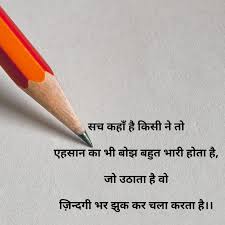 सच कहाँ है किसी ने तो
एहसान का भी बोझ बहुत भारी होता है,
जो उठाता है वो
ज़िन्दगी भर झुक कर चला करता है।।